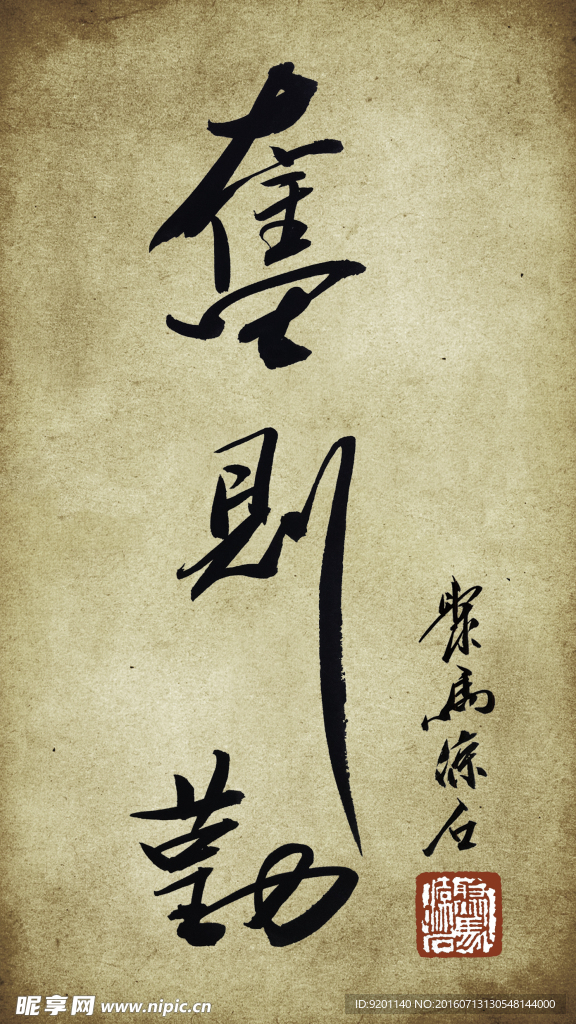 奮則勤
聚馬涼石
昵享网 www.nipic.cn
ID:9201140 NO:20160713130548144000